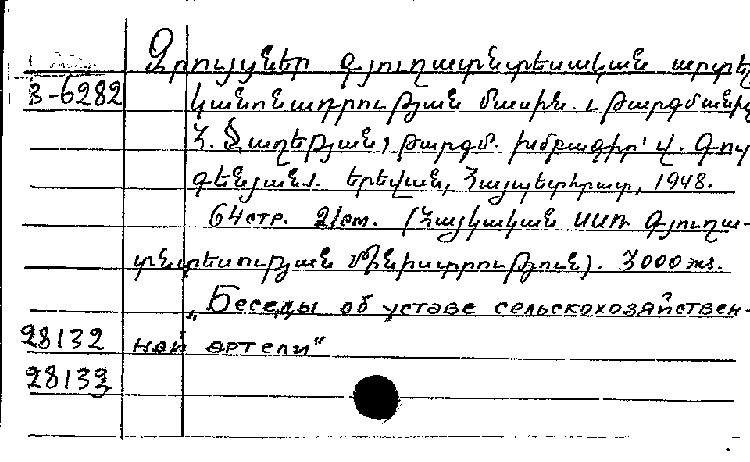 Զրույցներ գյուղատնտեսական արտել
З-6282 կանոնադրության մասին. ։ թարգմանիչ
Հ. Զաղեթյան, թարգմ. խմբագիր՝ Վ. Գույ
գենյանս. Երեվան, Հայպետհրատ, 1948.
64 стр. 21 см. (Հայկական ՍՍՌ Գյուղա-
տնտեսության Մինիստրություն). 3000 экз.
„Беседы об уставе сельскохозяйствен-
28132 ной артели“
28133